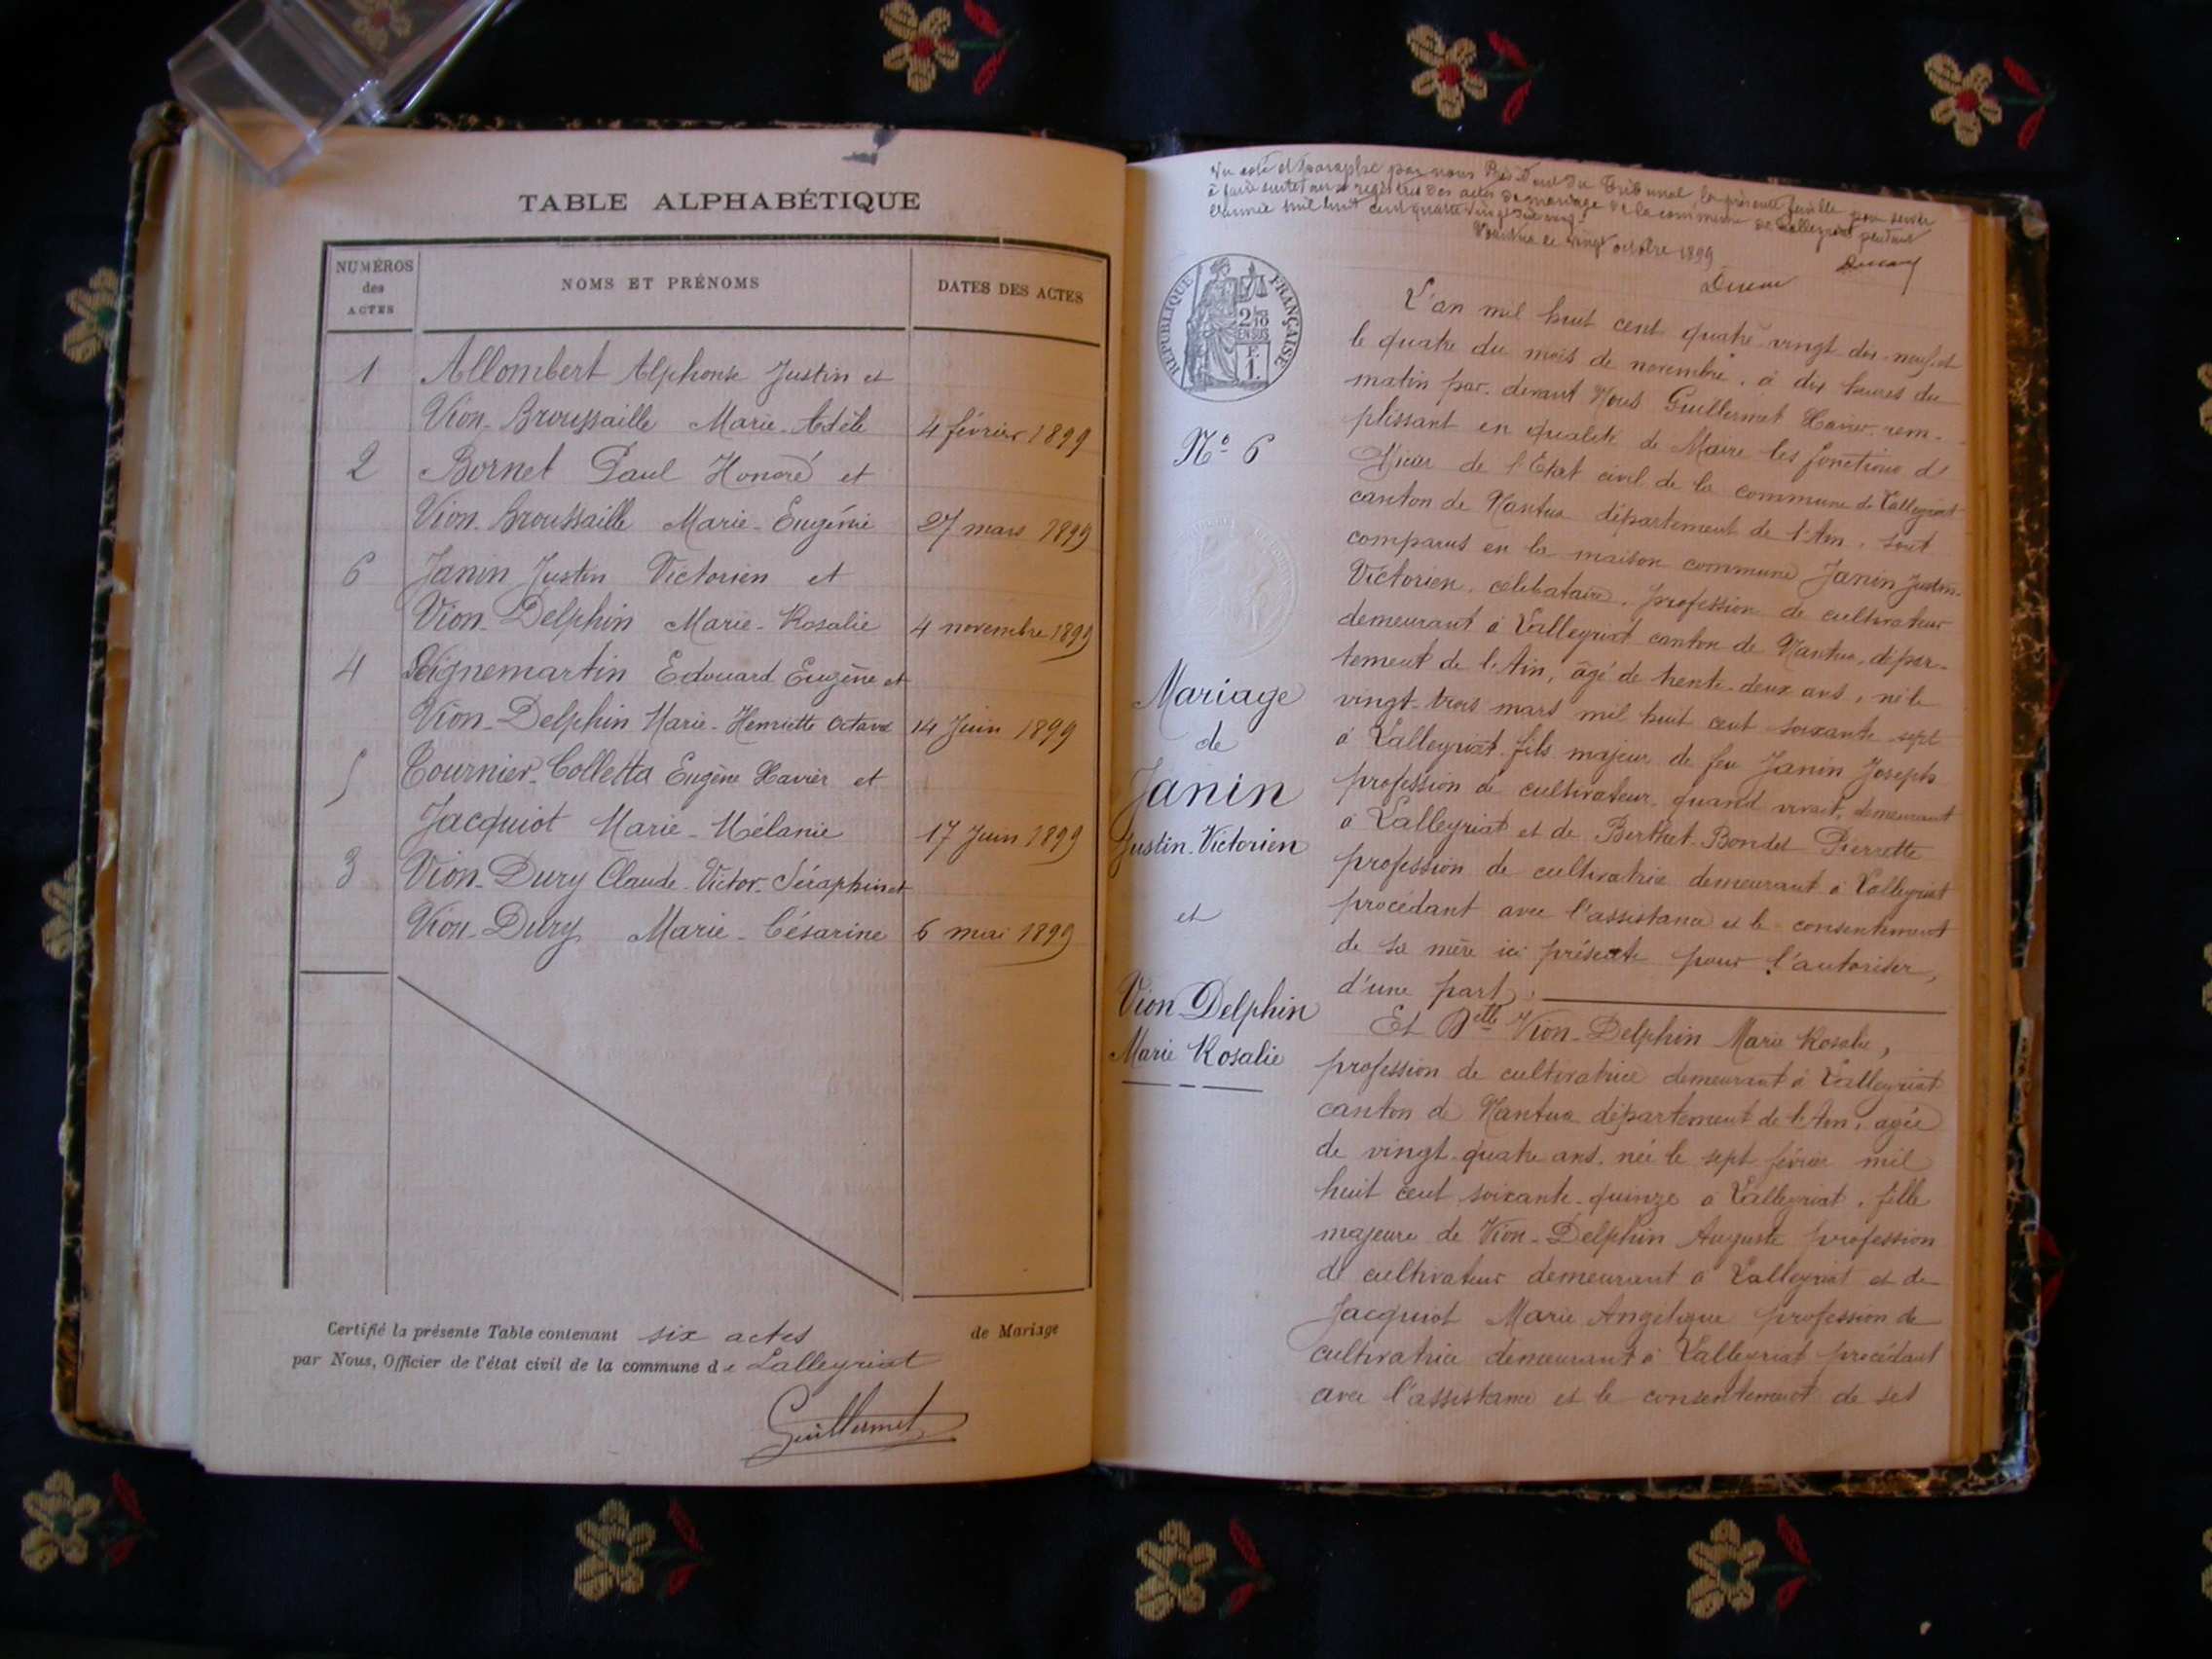 TABLE ALPHABÉTIQUE
NUMÉROS des ACTES
NOMS ET PRÉNOMS
DATES DES ACTES
1 Allombert Alphonse Justin et
Vion-Broussaille Marie-Adèle 4 février 1899
2 Bornet Paul Honoré et
Vion-Broussaille Marie-Eugénie 27 mars 1899
6 Janin Justin Victorien et
Vion-Delphin Marie-Rosalie 4 novembre 1899
4 Seignemartin Edouard Eugène et
Vion-Delphin Marie-Henriette Octavie 14 Juin 1899
5 Tournier-Colletta Eugène Xavier et
Jacquiot Marie-Mélanie 17 Juin 1899
3 Vion-Dury Claude-Victor-Séraphin et
Vion-Dury Marie-Césarine 6 mai 1899
Certifié la présente Table contenant six actes de Mariage
par Nous, Officier de l'état civil de la commune de Lalleyriat
Guillermet
par nous Président du Tribunal la présente feuille pour servir
à faire suite aux registres des actes de mariage de la commune de Lalleyriat pendant
l'année mil huit cent quatre vingt dix neuf
Nantua le vingt octobre 1899
RÉPUBLIQUE FRANÇAISE
2/10 EN SUS
F. 1.
N° 6
Mariage
de
Janin
Justin-Victorien
et
Vion-Delphin
Marie Rosalie
L'an mil huit cent quatre vingt dix-neuf et
le quatre du mois de novembre, à dix heures du
matin par-devant Nous Guillermet Xavier rem-
plissant en qualité de Maire les fonctions d'
Officier de l'Etat civil de la commune de Lalleyriat
canton de Nantua département de l'Ain, sont
comparus en la maison commune Janin Justin-
Victorien, célibataire, profession de cultivateur
demeurant à Lalleyriat canton de Nantua, dépar-
tement de l'Ain, âgé de trente-deux ans, né le
vingt-trois mars mil huit cent soixante-sept
à Lalleyriat fils majeur de feu Janin Joseph
profession de cultivateur quand vivait, demeurant
à Lalleyriat et de Berthet-Bondet Pierrette
profession de cultivatrice demeurant à Lalleyriat
procédant avec l'assistance et le consentement
de sa mère ici présente pour l'autoriser,
d'une part,
Et Delle Vion-Delphin Marie Rosalie,
profession de cultivatrice demeurant à Lalleyriat
canton de Nantua département de l'Ain, agée
de vingt-quatre ans, née le sept février mil
huit cent soixante-quinze à Lalleyriat, fille
majeure de Vion-Delphin Auguste profession
de cultivateur demeurant à Lalleyriat et de
Jacquiot Marie Angélique profession de
cultivatrice demeurant à Lalleyriat procédant
avec l'assistance et le consentement de ses